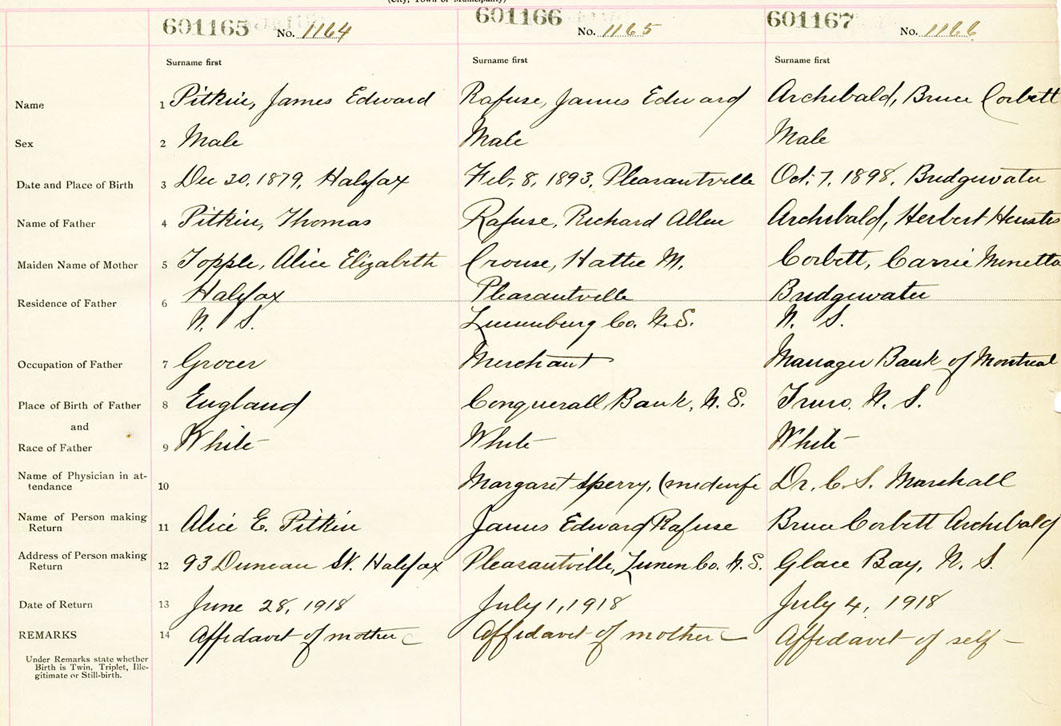 (City, Town or Municipality)
601165 No. 1164 601166 No. 1165 601167 No. 1166
Surname first Surname first Surname first
Name 1 Pitkin, James Edward Rafuse, James Edward Archibald, Bruce Corbett
Sex 2 Male Male Male
Date and Place of Birth 3 Dec 30, 1879, Halifax Feb. 8, 1893, Pleasantville Oct. 7, 1898, Bridgewater
Name of Father 4 Pitkin, Thomas Rafuse, Richard Allen Archibald, Herbert
Maiden Name of Mother 5 Topple, Alice Elizabeth Crouse, Hattie M. Corbett, Carrie Minetta
Residence of Father 6 Halifax Pleasantville Bridgewater
N. S. Lunenburg Co. N.S. N. S.
Occupation of Father 7 Grocer Merchant Manager Bank of Montreal
Place of Birth of Father 8 England Conquerall Bank, N. S. Truro, N. S.
and
Race of Father 9 White White White
Name of Physician in at-
tendance 10 Margaret Sperry, (midwife Dr. C. S. Marshall
Name of Person making
Return 11 Alice E. Pitkin James Edward Rafuse Bruce Corbett Archibald
Address of Person making
Return 12 93 Duncan St. Halifax Pleasantville, Lunen Co. N.S. Glace Bay, N. S.
Date of Return 13 June 28, 1918 July 1, 1918 July 4, 1918
REMARKS 14 Affidavit of mother Affidavit of mother Affidavit of self
Under Remarks state whether
Birth is Twin, Triplet, Ille-
gitimate or Still-birth.